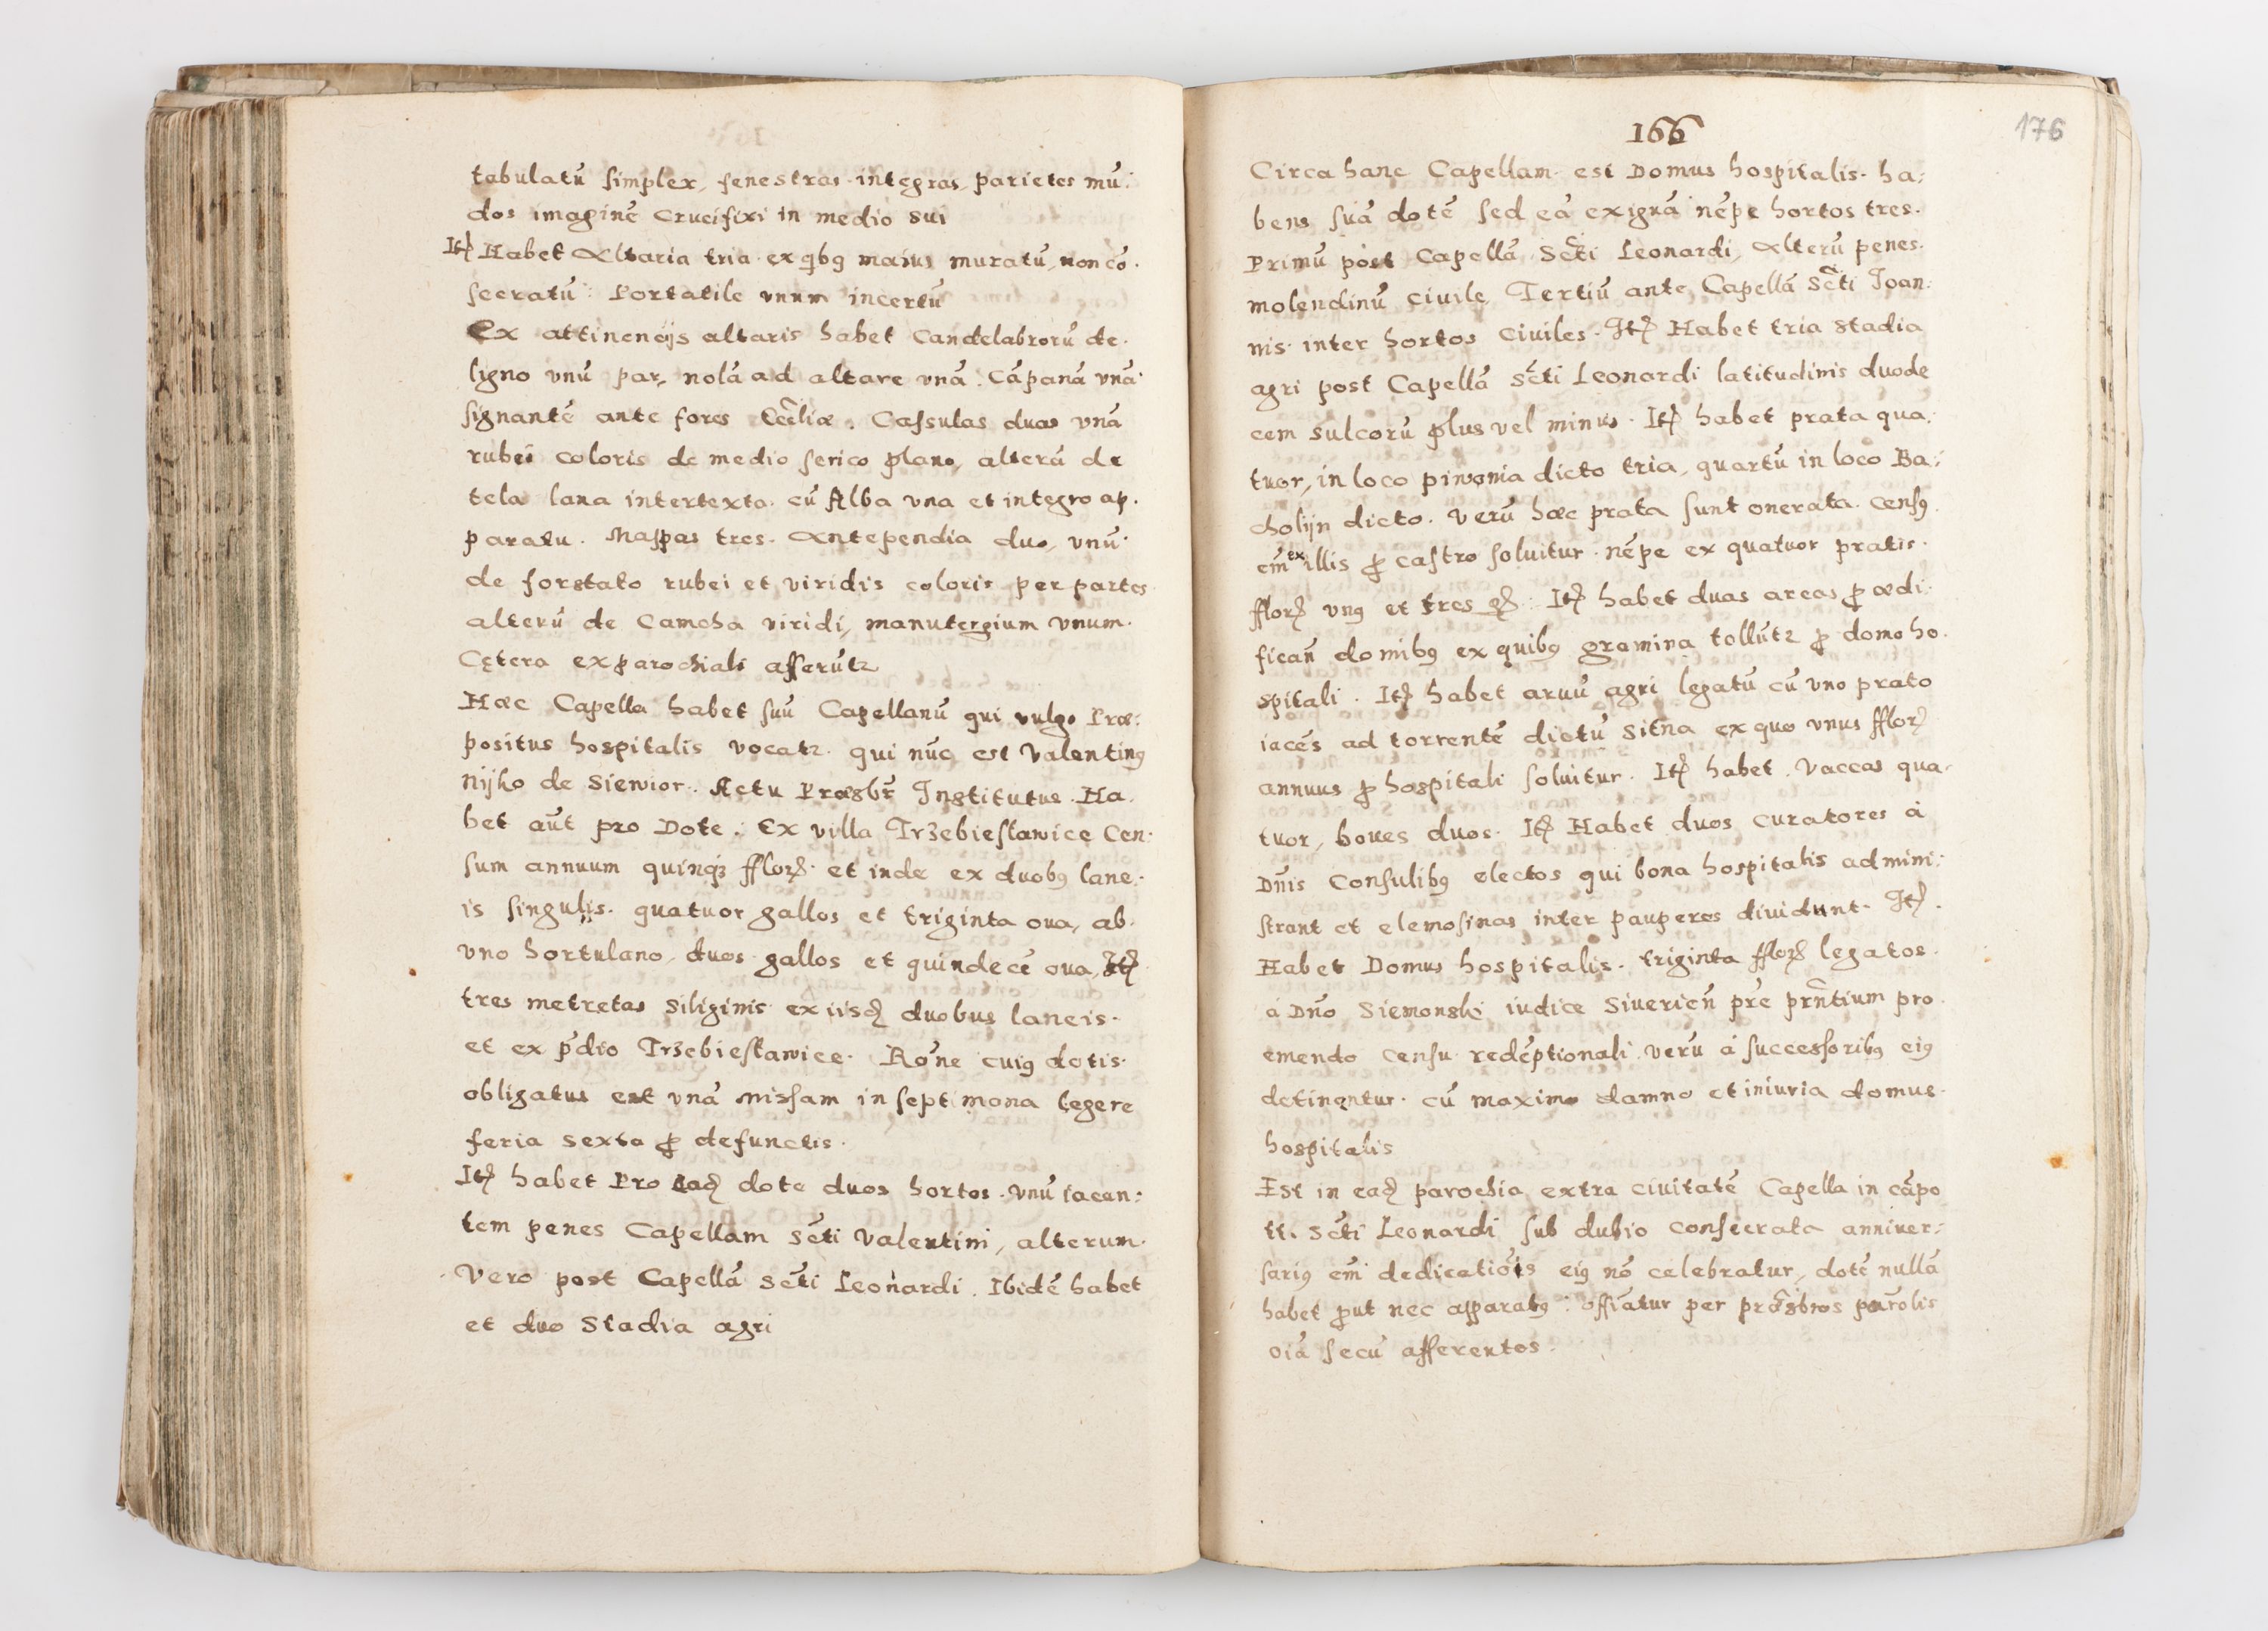 tabulatũ simplex, fenestras integras, parietes mu:
dos imaginẽ Crucifixi in medio sui
Itẽ Habet Altaria tria ex qibꝯ maius muratũ, non cõ.
secratũ: Portatile vnum incertũ
Ex attinencijs altaris habet Candelabrorũ de
ligno vnũ par, nolã ad altare vnã. Cãpanã vnã
signantẽ ante fores Eccliæ. Cassulas duas vnã
rubei coloris de medio serico plano, alterã de
tela lana intertexta cũ Alba vna et integro ap.
paratu. Mappas tres. Antependia duo, vnũ
de forstato rubei et viridis coloris per partes
alterũ de Camcha viridi, manutergium vnum.
Cętera ex parochiali afferũtr
Hæc Capella habet suũ Capellanũ qui vulgo Præ:
positus hospitalis vocatr. qui nũc est Valentinꝯ
Nijko de Siewior. Actu Præsbr̃ Institutus. Ha.
bet aũt pro Dote. Ex villa Trzebiesławice Cen.
sum annuum quinqꝫ fflorꝫ. et inde ex duobꝯ lane:
is singulis. quatuor gallos et triginta oua, ab
vno hortulano, duos gallos et quindecẽ oua, Itẽ
tres metretas siliginis ex iisdẽ duobus laneis.
et ex p̃dio Trzebiesławice. Rõne cuiꝯ dotis
obligatus est vnã missam in septimana legere
feria sexta ꝓ defunctis.
Itẽ habet Pro eadẽ dote duos hortos. vnũ iacen:
tem penes Capellam Scti Valentini, alterum
Vero post Capellã Scti Leonardi. Ibidẽ habet
et duo Stadia agri
166
176
Circa hanc Capellam est Domus hospitalis. ha:
bens suã dotẽ sed eã exiguã nẽpe hortos tres.
Primũ post Capellã Scti Leonardi, Alterũ penes
molendinũ ciuile, Tertiũ ante Capellã Scti Joan:
nis inter hortos Ciuiles. Itẽ Habet tria stadia
agri post Capellã Scti Leonardi latitudinis duode
cem sulcorũ plus vel minus. Itẽ habet prata qua.
tuor, in loco piwonia dicto tria, quartũ in loco Ba:
cholijn dicto. Verũ hæc prata sunt onerata. Censꝯ
em̃ ex illis ꝓ castro soluitur. nẽpe ex quatuor pratis.
fflorꝫ vnꝯ et tres gꝫ. Itẽ habet duas areas ꝓ ædi.
ficañ domibꝯ ex quibꝯ gramina tollũtr ꝓ domo ho.
spitali. Itẽ habet aruũ agri legatũ cũ vno prato
iacẽs ad torrentẽ dictũ Sitna ex quo vnus fflorꝫ
annuus ꝓ hospitali soluitur. Itẽ habet Vaccas qua
tuor, boues duos. Itẽ Habet duos curatores à
Dñis Consulibꝯ electos qui bona hospitalis admini:
strant et elemosinas inter pauperes diuidunt. Itẽ.
Habet Domus hospitalis. triginta fflorꝫ legatos
á Dño Siemonski iudice Siuerieñ pr̃e prñtium pro
emendo censu redẽptionali verũ á successoribꝯ eiꝯ
detinentur. cũ maximo damno et iniuria domus
hospitalis
Est in eadẽ parochia extra ciuitatẽ Capella in cãpo
tt. Scti Leonardi sub dubio consecrata anniuer:
sariꝯ em̃ dedicatiõis eiꝯ nõ celebratur, dotẽ nullã
habet ꝓut nec apparatꝯ: offiatur per præsbros parõlis
oia secũ afferentes.